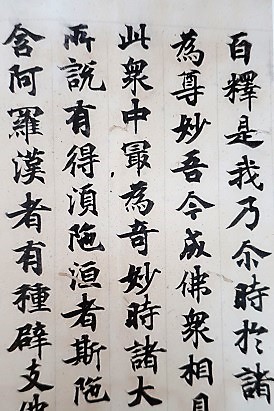 百釋是我乃尒時於諸
為尊妙吾今成佛衆相具
此衆中冣為奇妙時諸大
所説有得湏陁洹者斯陁
含阿羅漢者有種辟支佛